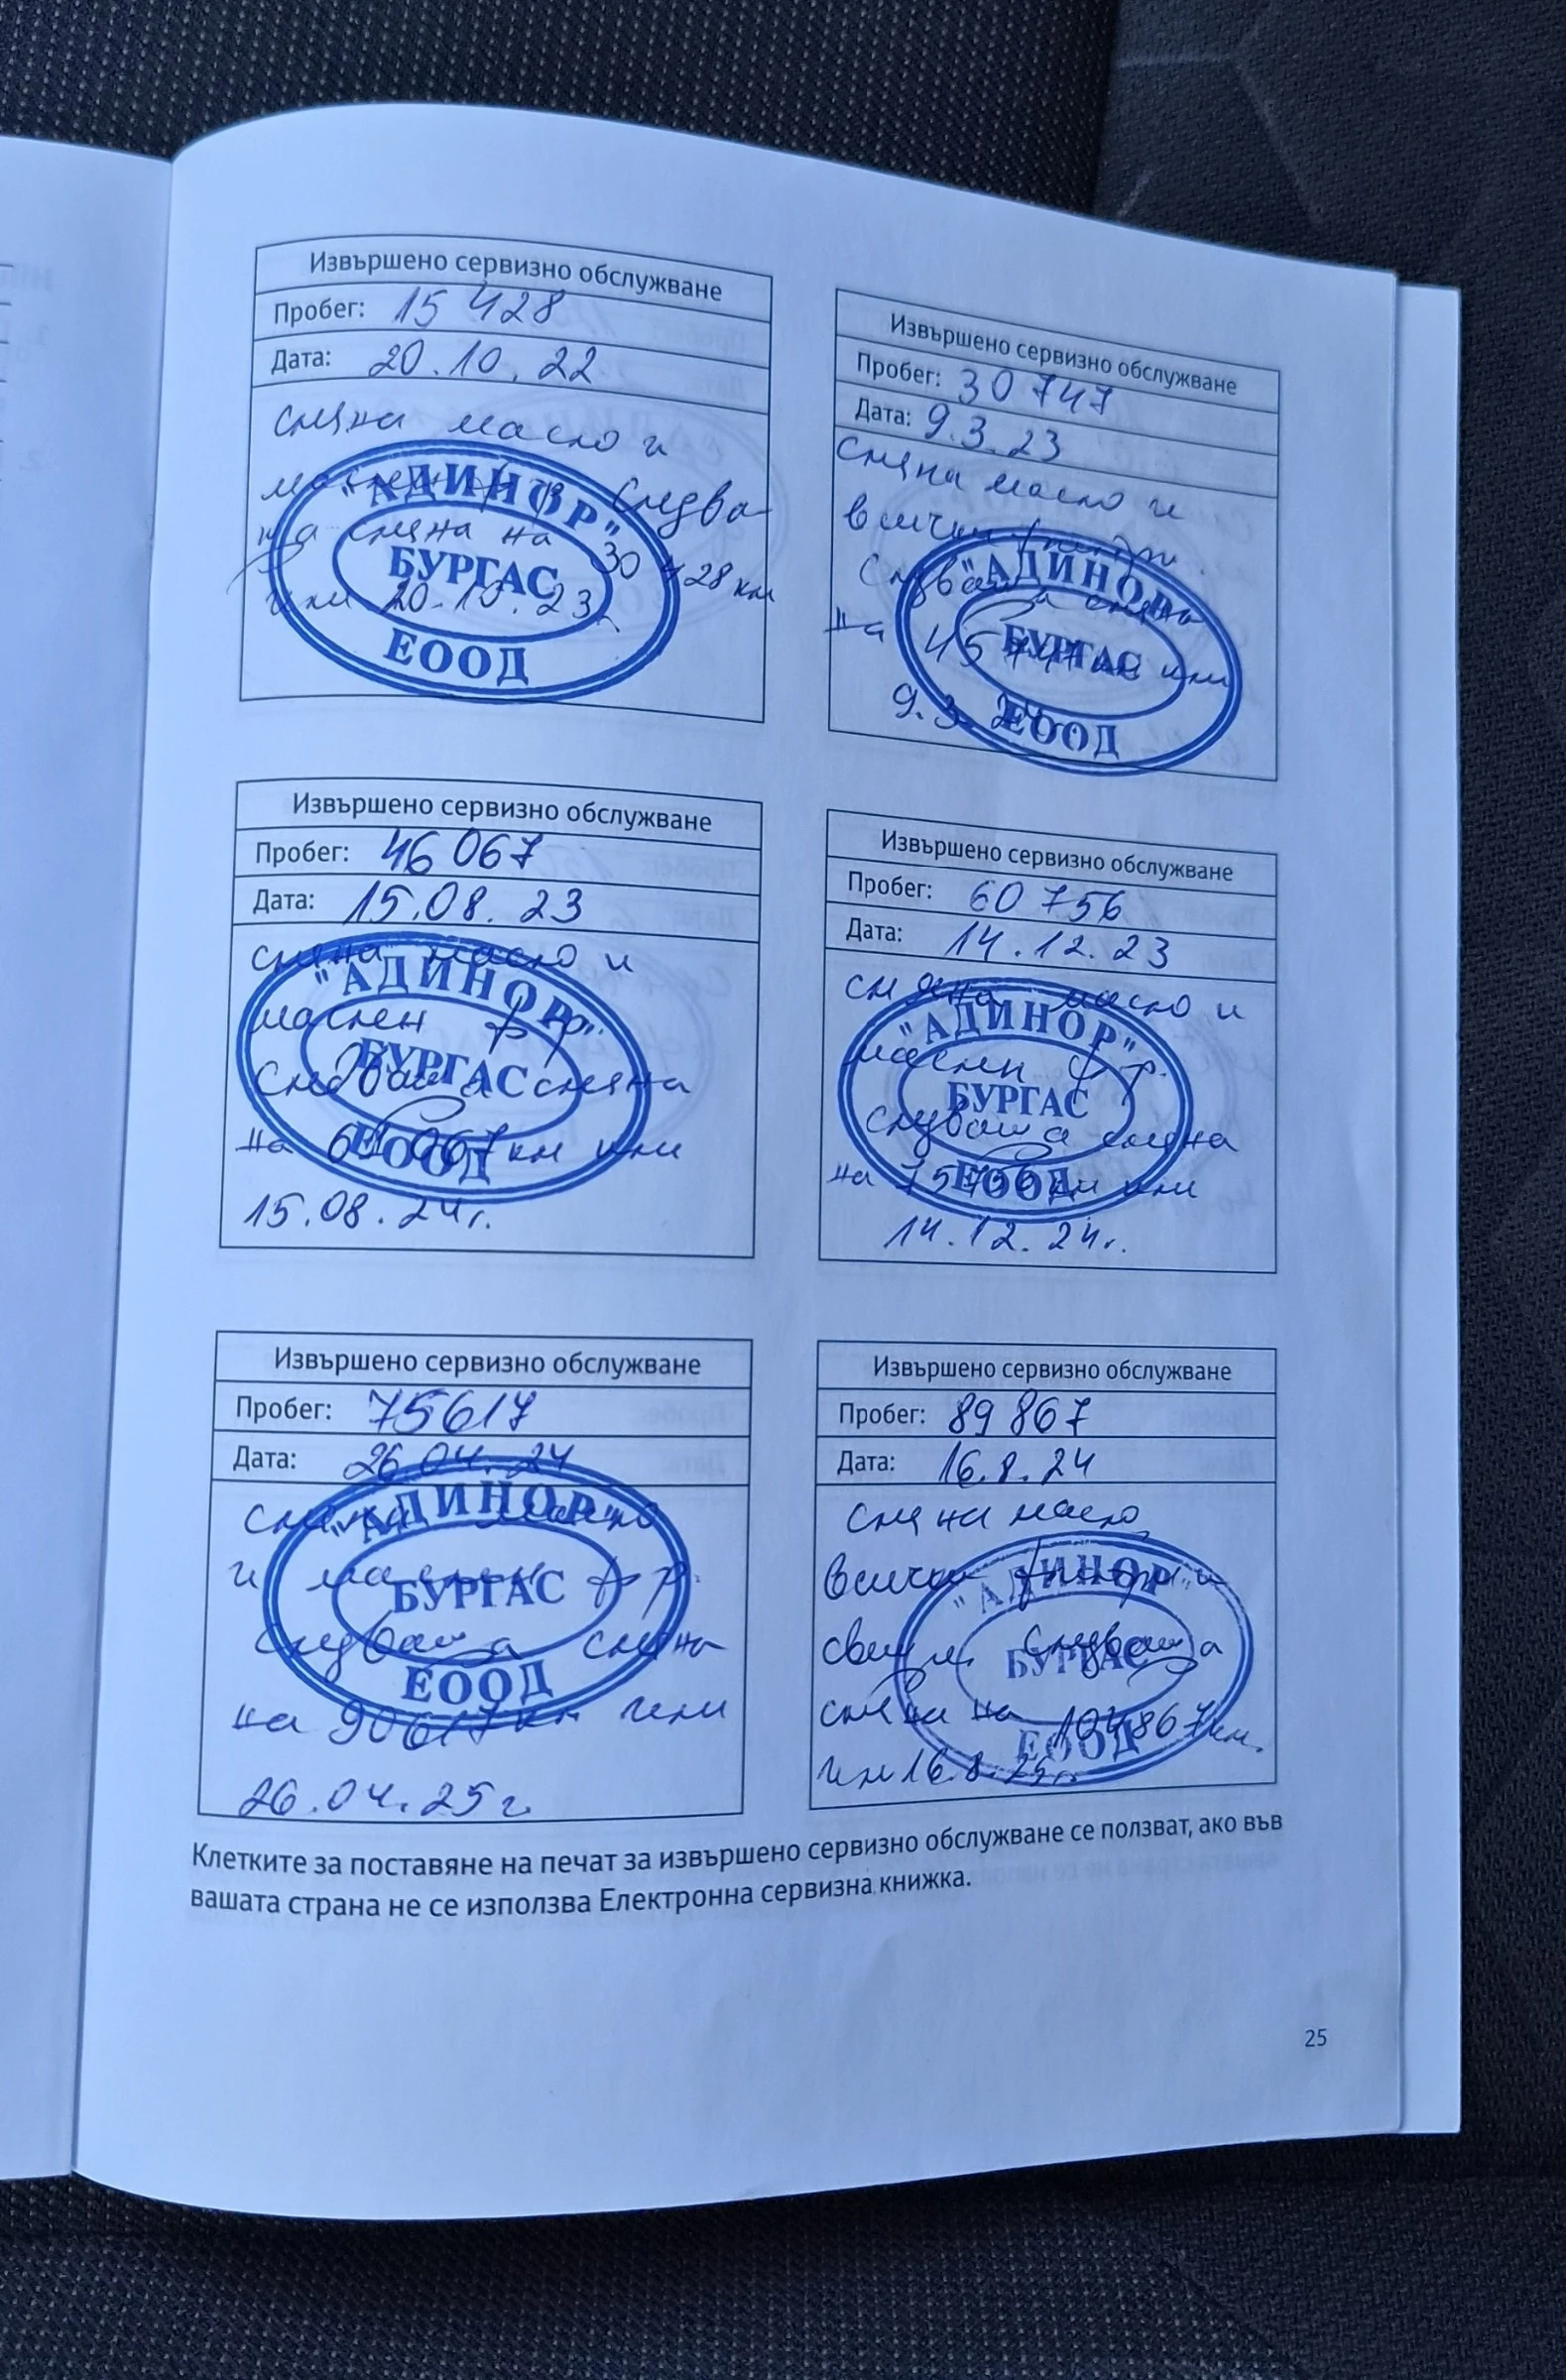 Извършено сервизно обслужване
Пробег: 15 428
Дата: 20.10.22
смяна масло и
маслен ф-р. Следва-
ща смяна на 30 428 км
или 20.10.23г.
"АДИНОР"
БУРГАС
ЕООД
Извършено сервизно обслужване
Пробег: 30 747
Дата: 9.3.23
смяна масло и
всички филтри.
Следваща смяна
на 45 747 км или
9.3.24г.
"АДИНОР"
БУРГАС
ЕООД
Извършено сервизно обслужване
Пробег: 46 067
Дата: 15.08.23
смяна масло и
маслен ф-р.
Следваща смяна
на 61 067 км или
15.08.24г.
"АДИНОР"
БУРГАС
ЕООД
Извършено сервизно обслужване
Пробег: 60 756
Дата: 14.12.23
смяна масло и
маслен ф-р.
следваща смяна
на 75756 км или
14.12.24г.
"АДИНОР"
БУРГАС
ЕООД
Извършено сервизно обслужване
Пробег: 75617
Дата: 26.04.24
смяна масло
и маслен ф-р.
следваща смяна
на 90617 км или
26.04.25г.
"АДИНОР"
БУРГАС
ЕООД
Извършено сервизно обслужване
Пробег: 89 867
Дата: 16.8.24
смяна масло,
всички филтри и
свещи. Следваща
смяна на 104867км.
или 16.8.25г.
"АДИНОР"
БУРГАС
ЕООД
Клетките за поставяне на печат за извършено сервизно обслужване се ползват, ако във
вашата страна не се използва Електронна сервизна книжка.
25